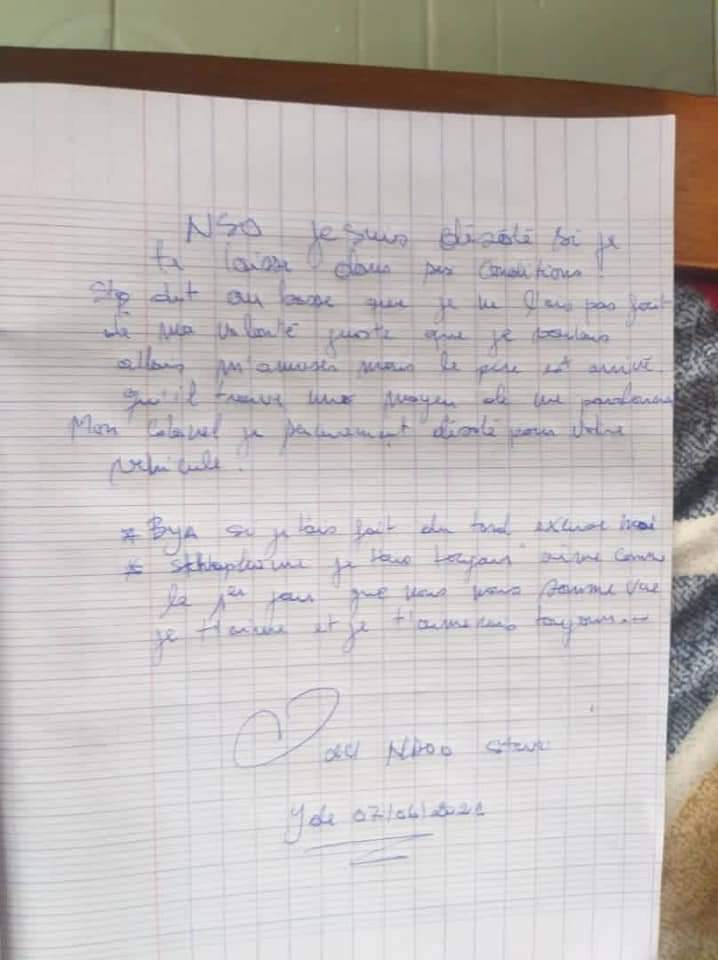 NSO je suis désolé si je
te laisse dans ses conditions!
Stp dit au boss que je ne l'ais pas fait
de ma volonté juste que je voulais
allais m'amuser mais le pire est arrivé.
qu'il trouve une moyen de me pardonner
Mon Colonel je désolé pour votre
véhicule.
* Bya si je t'ais fait du tord excuse moi
* je t'ais toujours aimé comme
le 1er jour que nous nous somme vue
je t'aime et je t'aimerais toujours.
NDOO Steve
Yde 07/06/2021